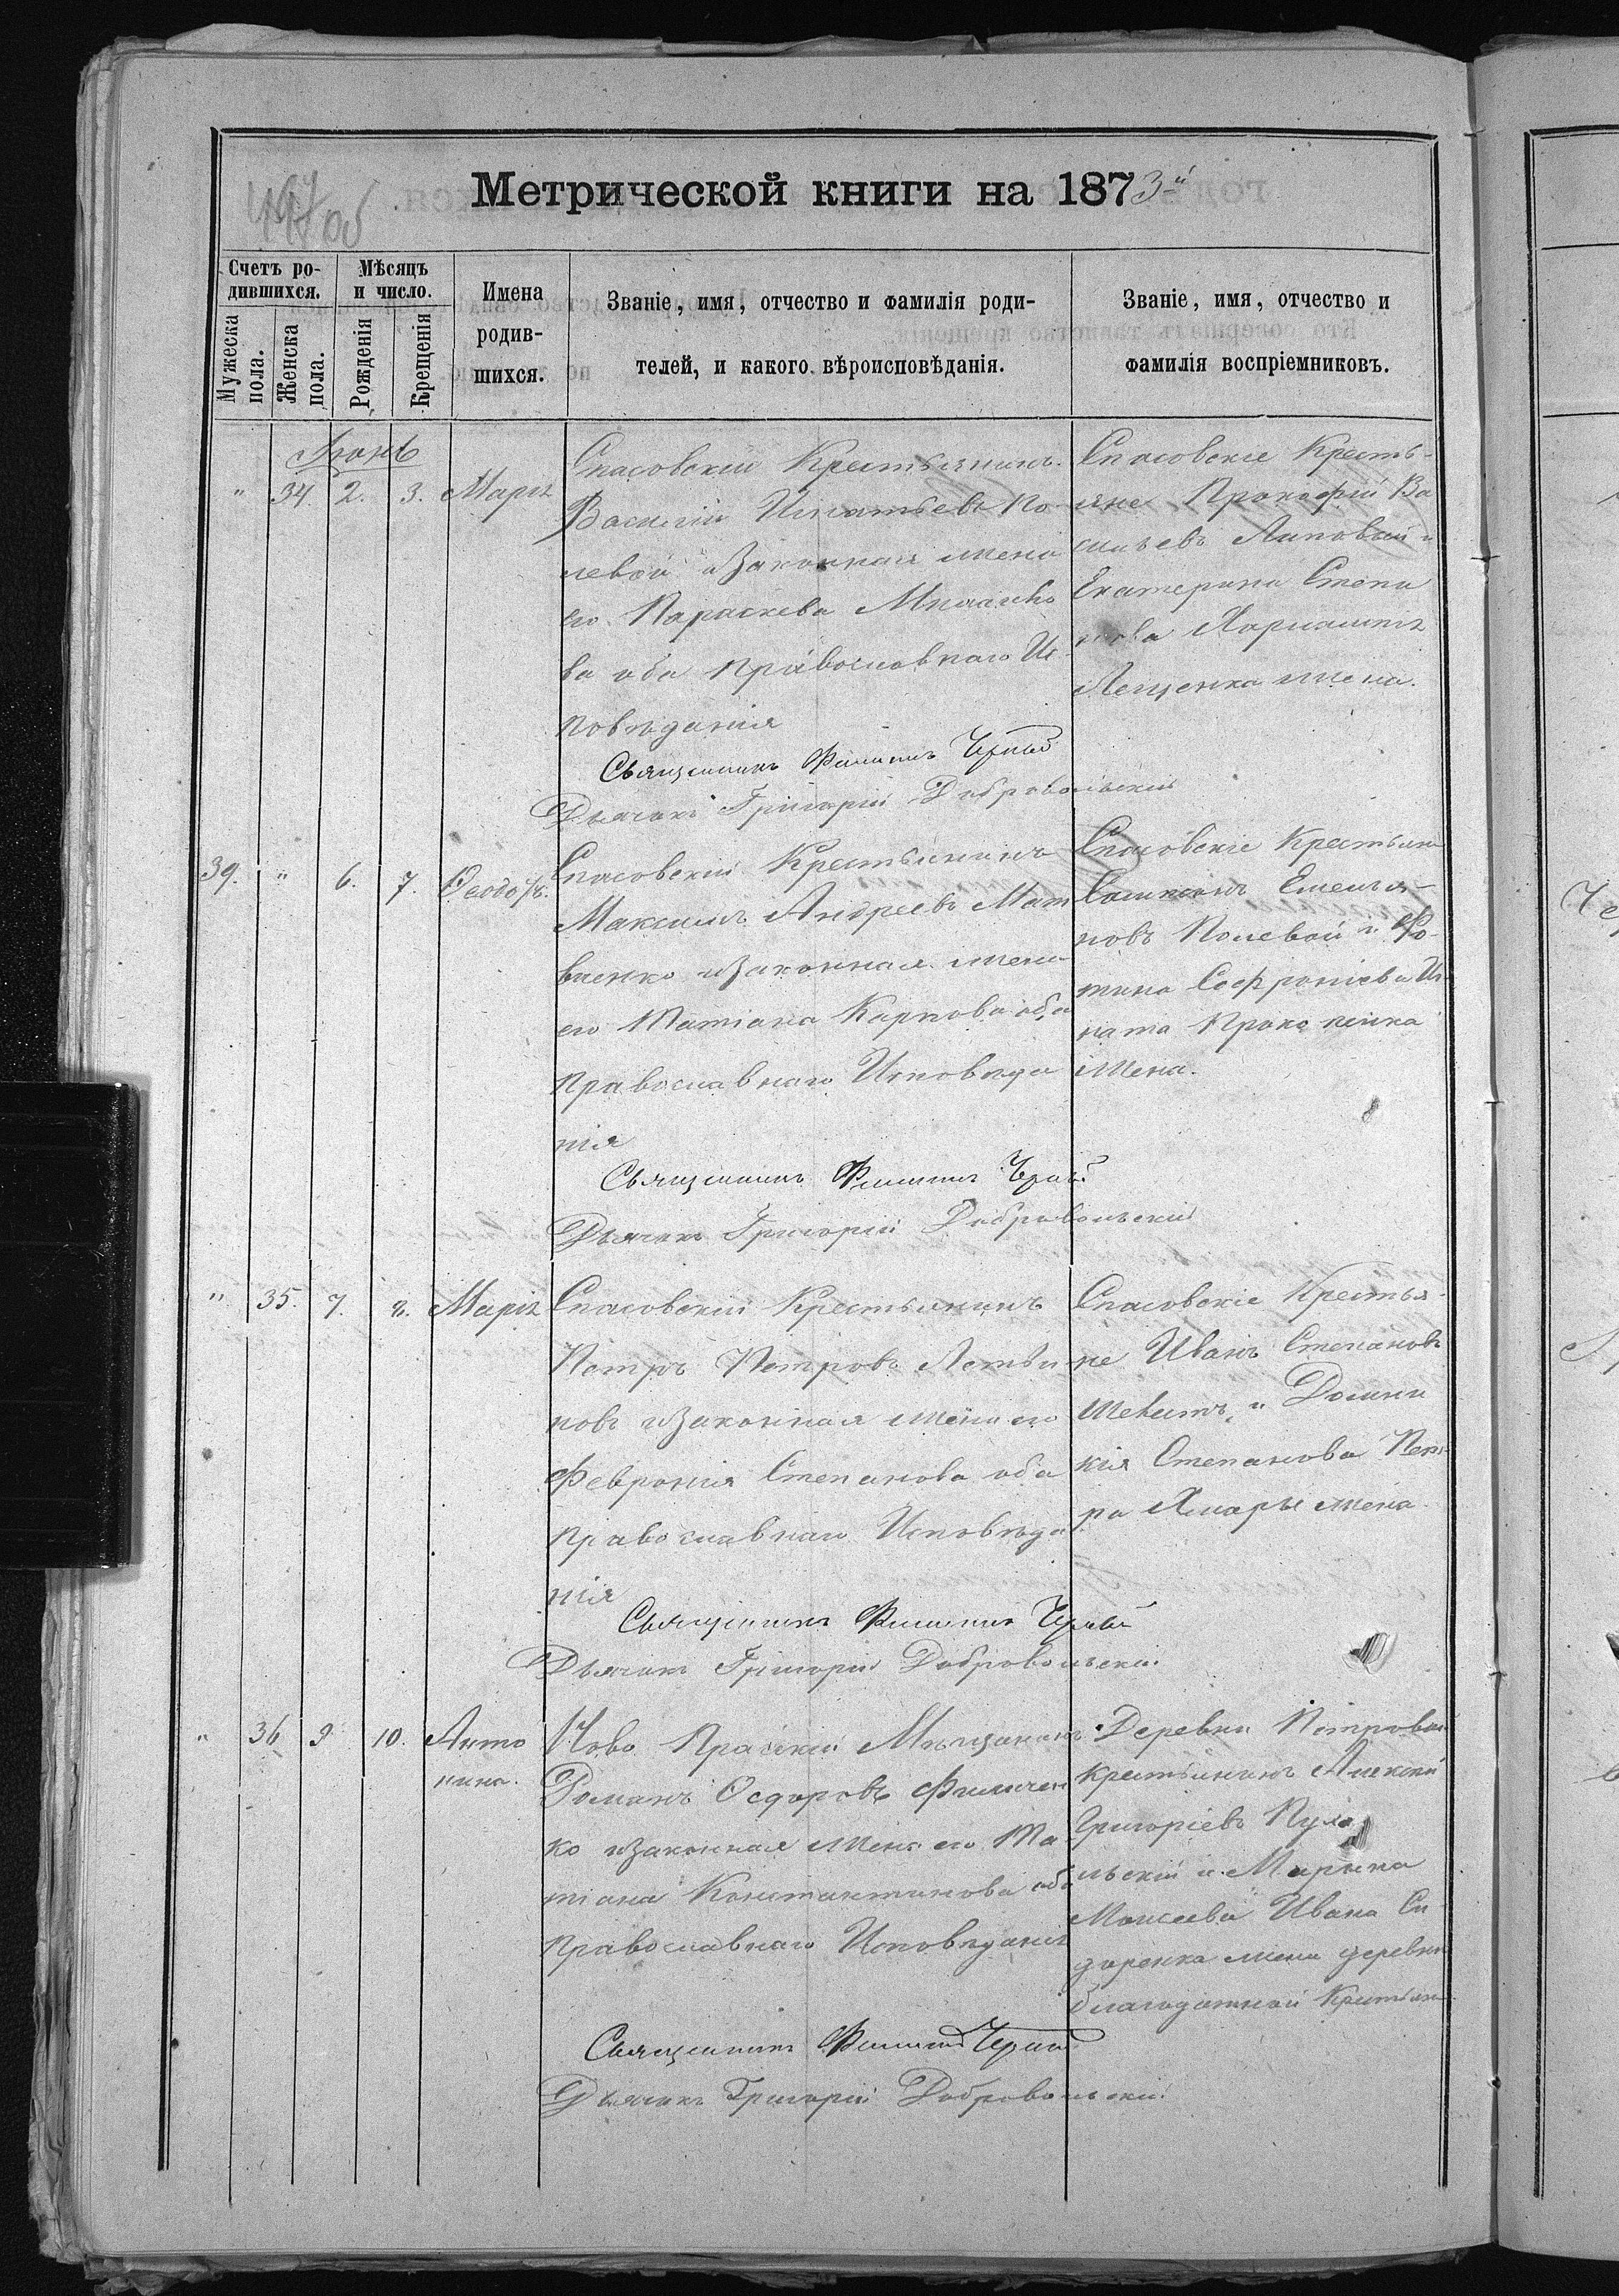 Метрической книги на 1873й
Счетъ ро-
дившихся.
Мѣсяцъ
и число.
Имена
родив-
шихся.
Званіе, имя, отчество и фамилія роди-
телей, и какого вѣроисповѣданія.
Званіе, имя, отчество и
фамилія воспріемниковъ.
Мужеска
пола.
Женска
пола.
Рожденія
Крещенія
Іюнь
" 34 2. 3. Марія
Спасовскій Крестьянинъ
Василій Игнатьевъ По-
левой и Законная жена
его Параскева
ва оба православнаго Ис
повѣданія
Священникъ Филиппъ
Дьячекъ Григорій Добровольскій
Спасовскіе Кресть-
яне Прокофій Ва
сильевъ Липовый и
Екатерина Степа
нова
Лещенка жена.
39. " 6. 7. Ѳеодоръ.
Спасовскій Крестьянинъ
Максимъ Андреевъ Мат
віенко и Законная жена
его Татіана Карпова оба
православнаго Исповѣда
нія
Священникъ Филиппъ
Дьячекъ Григорій Добровольскій
Спасовскіе Крестьяне
Емелья-
новъ Полевой и Фо-
тина Софроніева Иг
ната Прокопенка
жена.
" 35. 7. 8. Марія
Спасовскій Крестьянинъ
Петръ Петровъ Литви
новъ и Законная жена его
Февронія Степанова оба
православнаго Исповѣда
нія
Священникъ Филиппъ
Дьячекъ Григорій Добровольскій
Спасовскіе Крестья-
не Иванъ Степановъ
и Домни
кія Степанова Пет-
ра Хмары жена.
" 36 9 10. Анто
нина.
Ново Пражскій Мѣщанинъ
Романъ Ѳедоровъ Филичен
ко и Законная жена его Та
тіана Константинова оба
православнаго Исповѣданія
Священникъ Филиппъ
Дьячекъ Григорій Добровольскій
Деревни Петровки
крестьянинъ Алексѣй
Григоріевъ
и Марина
Моисеева Ивана Си
доренка жена деревни
благодатной Крестьян